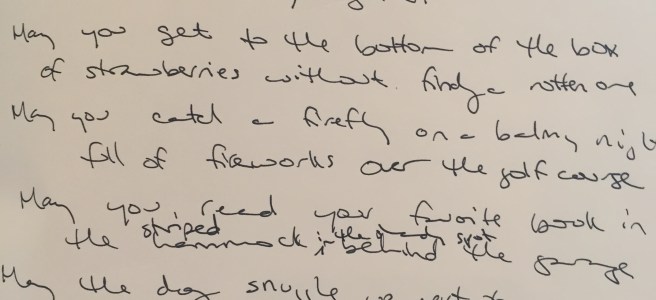 May you get to the bottom of the box
of strawberries without finding a rotten one
May you catch a firefly on a balmy nigh
full of fireworks over the golf course
May you read your favorite book in
striped in the shady spot
the hammock behind the garage
May the dog snuggle up next to